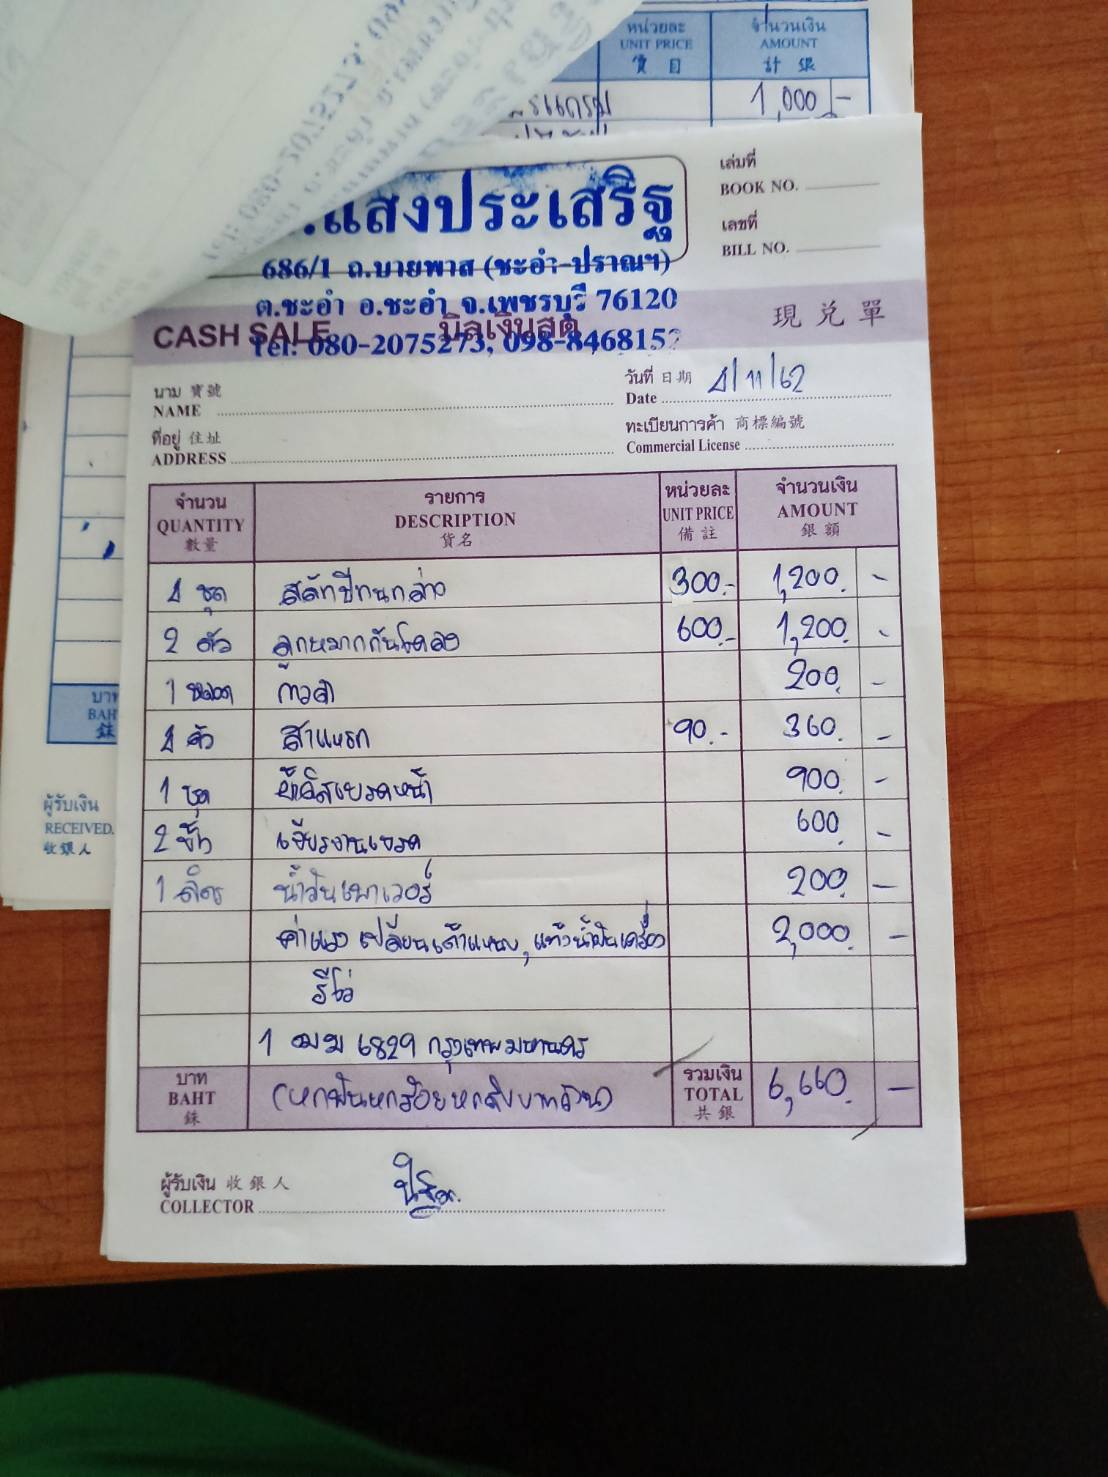 หน่วยละ จำนวนเงิน
UNIT PRICE AMOUNT
計 銀
1,000 -
แสงประเสริฐ
686/1 ถ.บายพาส (ชะอำ-ปราณฯ)
ต.ชะอำ อ.ชะอำ จ.เพชรบุรี 76120
Tel: 080-2075273, 098-8468152
เล่มที่
BOOK NO.
เลขที่
BILL NO.
CASH SALE บิลเงินสด 現兑單
นาม 寶號
NAME
วันที่ 日期 4/11/62
Date
ที่อยู่ 住址
ADDRESS
ทะเบียนการค้า 商標編號
Commercial License
จำนวน รายการ หน่วยละ จำนวนเงิน
QUANTITY DESCRIPTION UNIT PRICE AMOUNT
數量 貨名 備註 銀額
4 ชุด 300.- 1,200. -
2 ตัว ลูกหมากกันโคลง 600.- 1,200. -
1 หลอด กาวดำ 200. -
4 ตัว สาแหรก 90.- 360. -
1 ชุด ผ้าดิสเบรคหน้า 900. -
2 ข้าง เจียรจานเบรค 600. -
1 ลิตร น้ำมันเพาเวอร์ 200. -
ค่าแรง เปลี่ยน 2,000. -
รีโว่
1 ฒฆ 6829 กรุงเทพมหานคร
บาท
BAHT
銖
(หกพันหกร้อยหกสิบบาทถ้วน)
รวมเงิน
TOTAL
共銀
6,660. -
ผู้รับเงิน 收銀人
COLLECTOR
บาท
BAH
銖
ผู้รับเงิน
RECEIVED.
收銀人